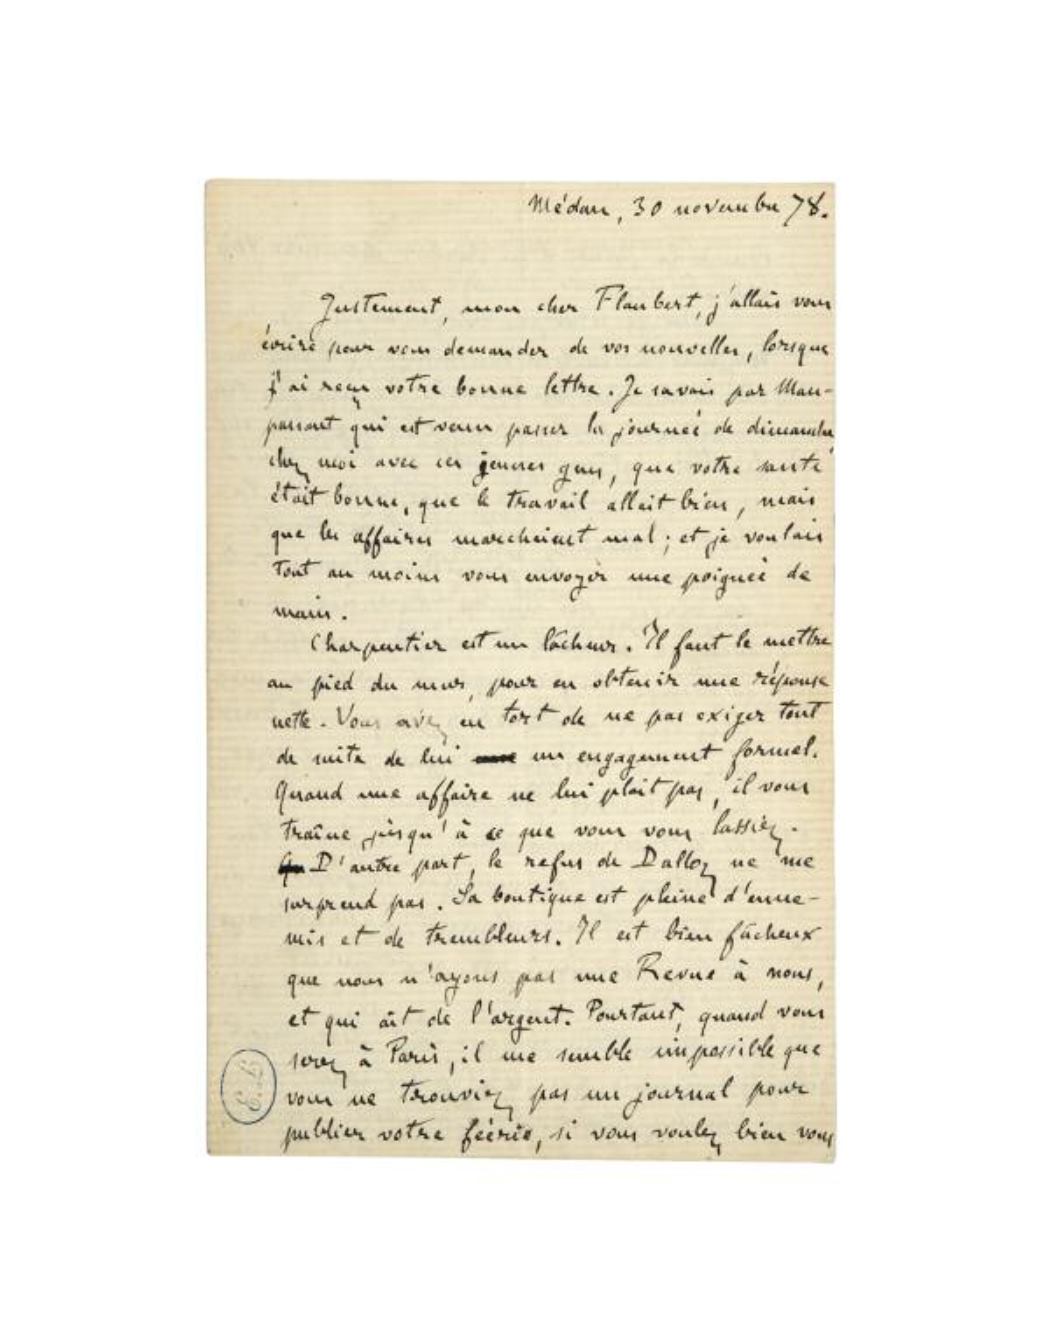 Médan, 30 novembre 78.
Justement, mon cher Flaubert, j'allais vous
écrire pour vous demander de vos nouvelles, lorsque
j'ai reçu votre bonne lettre. Je savais par Mau-
passant qui est venu passer la journée de dimanche
chez moi avec ces jeunes gens, que votre santé
était bonne, que le travail allait bien, mais
que les affaires marchaient mal ; et je voulais
tout au moins vous envoyer une poignée de
main.
Charpentier est un lâcheur. Il faut le mettre
au pied du mur, pour en obtenir une réponse
nette. Vous avez eu tort de ne pas exiger tout
de suite de lui un engagement formel.
Quand une affaire ne lui plaît pas, il vous
traîne jusqu'à ce que vous vous lassiez.
D'autre part, le refus de Dalloz ne me
surprend pas. Sa boutique est pleine d'enne-
mis et de trembleurs. Il est bien fâcheux
que nous n'ayons pas une Revue à nous,
et qui ait de l'argent. Pourtant, quand vous
serez à Paris, il me semble impossible que
vous ne trouviez pas un journal pour
publier votre féérie, si vous voulez bien vous